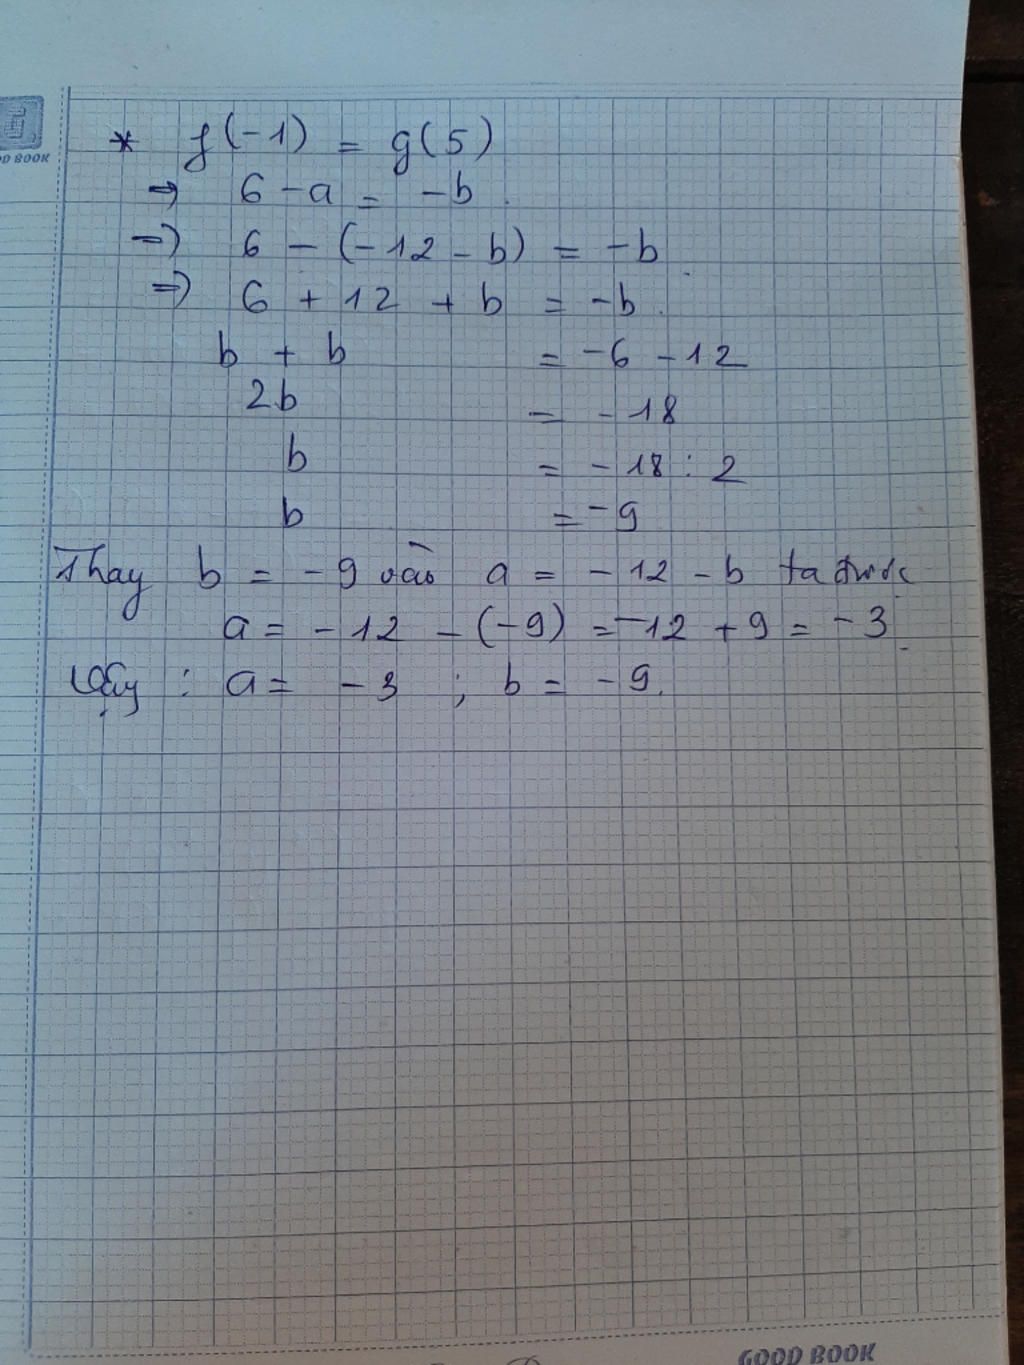 OD BOOK
* f(-1) = g(5)
=> 6 - a = -b.
=> 6 - (-12 - b) = -b
=> 6 + 12 + b = -b.
b + b = -6 - 12
2b = -18
b = -18 : 2
b = -9
Thay b = -9 vào a = -12 - b ta được
a = -12 - (-9) = -12 + 9 = -3.
Vậy : a = -3 ; b = -9.
GOOD BOOK